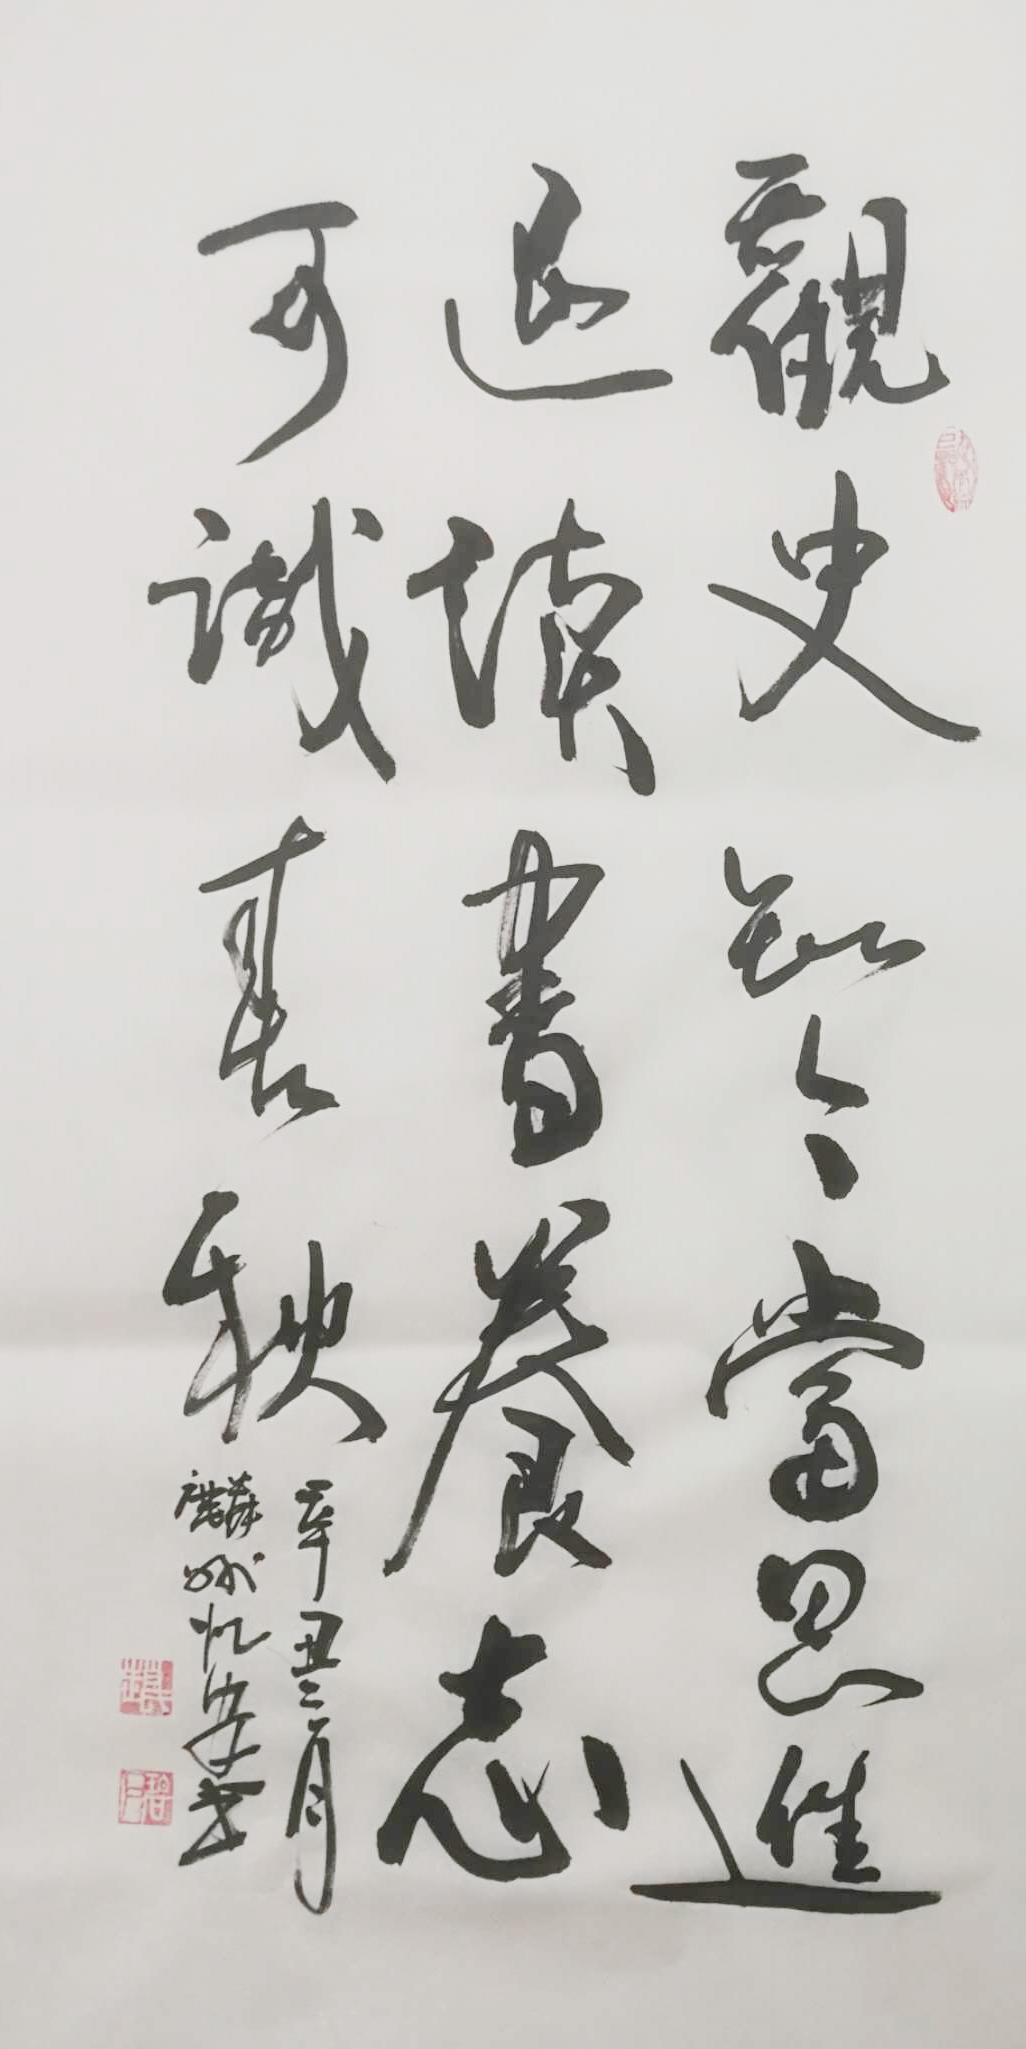 觀史知今當思進
退讀書養志
可識春秋
辛丑二月